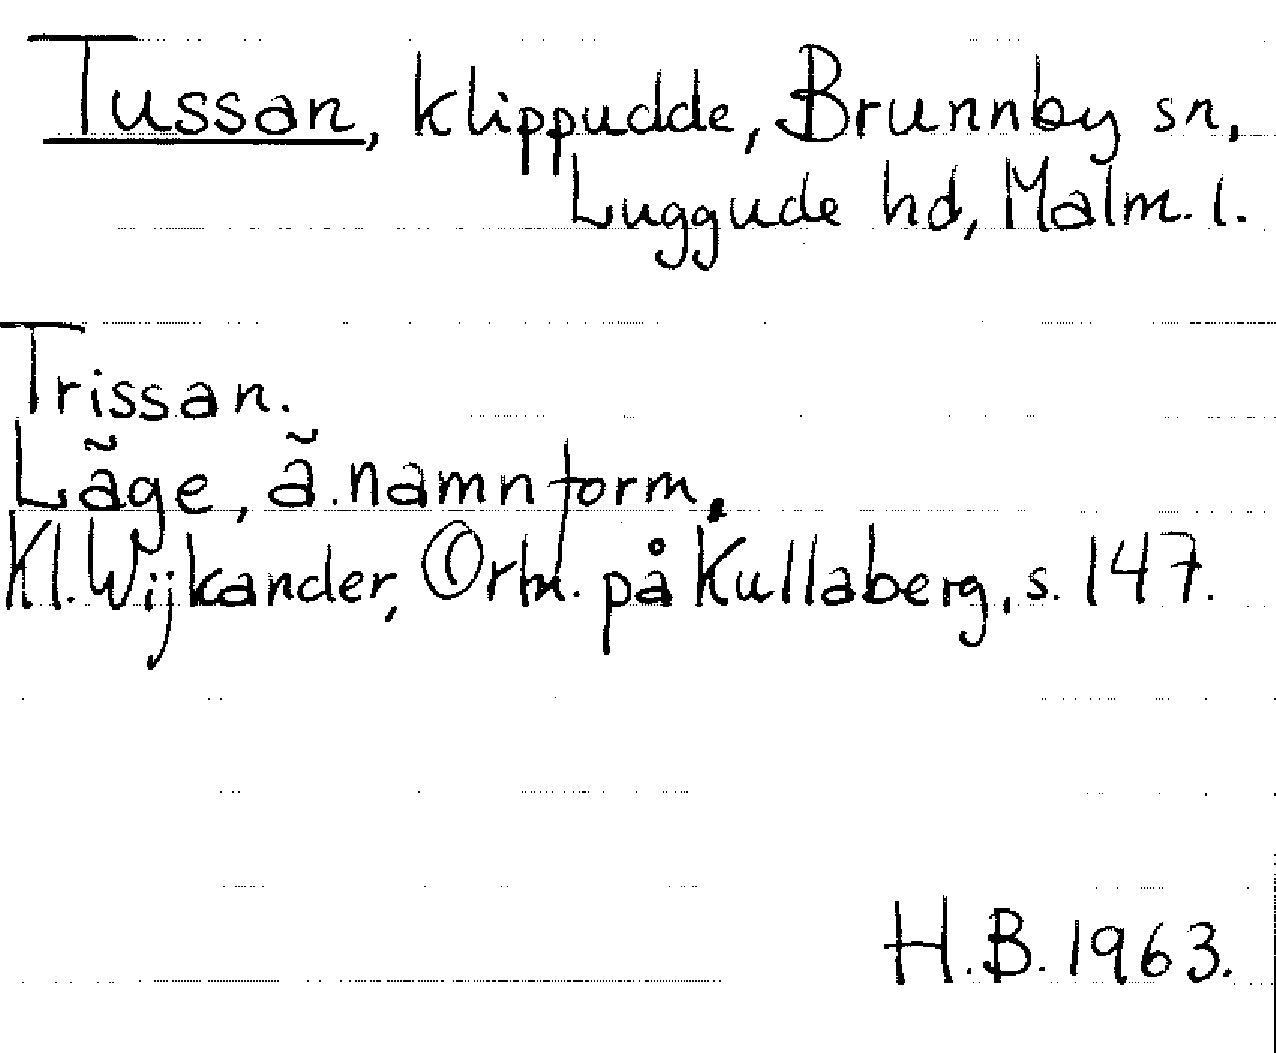 Tussan, klippudde, Brunnby sn,
Luggude hd, Malm. l.
Trissan.
Läge, ä. namnform.
Kl. Wijkander, Ortn. på Kullaberg, s. 147.
H.B. 1963.